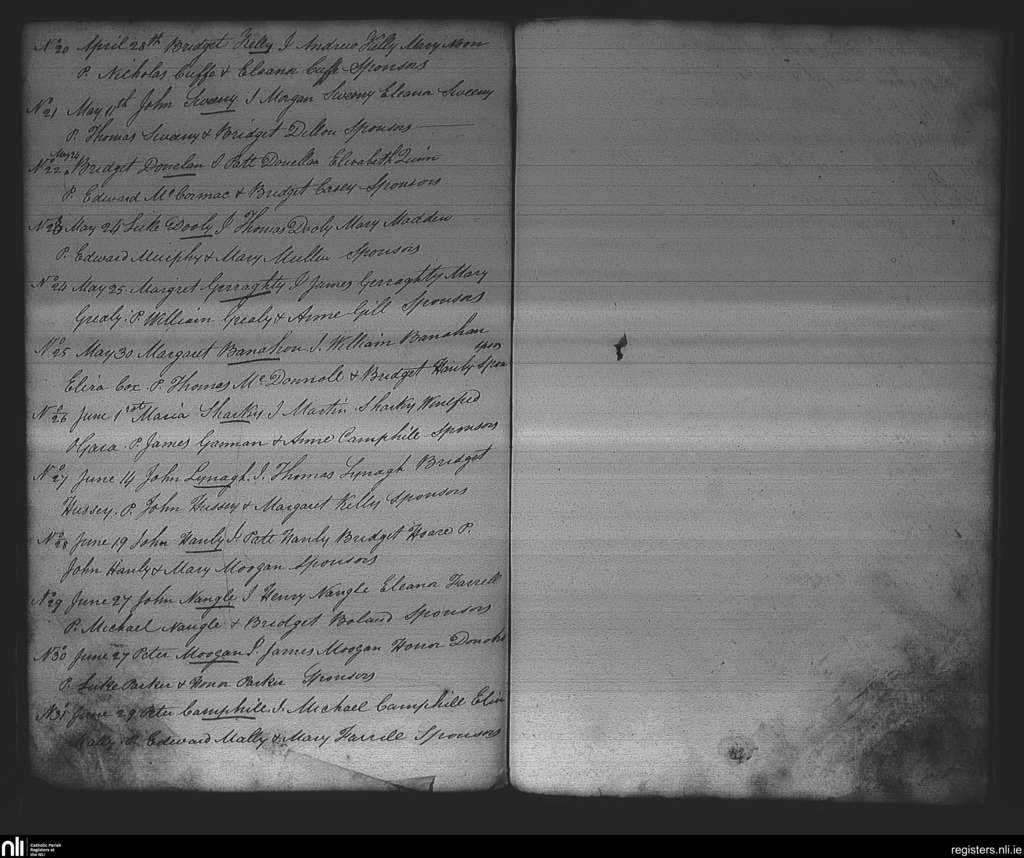 No 20 April 28th Bridget Kelly I Andrew Kelly Mary Noon
P. Nicholas Cuffe & Eleana Cuffe Sponsors
No 21 May 11th John Sweeny I Morgan Sweeny Eleana Sweeny
P. Thomas Sweeny & Bridget Dillon Sponsors
No 22 Bridget Donelan I Patt Donellan Elizabeth Quinn
P. Edward McCormac & Bridget Casey Sponsors
No 23 May 24 Luke Dooly I Thomas Dooly Mary Madden
P. Edward Murphy & Mary Mullen Sponsors
No 24 May 25 Margret Gerraghty I James Gerraghty Mary
Grealy. P. William Grealy & Anne Gill Sponsors
No 25 May 30 Margaret Banahon I. William Banahan
Eliza Cox P. Thomas McDonnell & Bridget Hanly Spon
sors
No 26 June 1st Maria Sharkey I Martin Sharky Winefred
OGara. P. James Gannan & Anne Camphile Sponsors
No 27 June 14 John Lynagh I. Thomas Lynagh Bridget
Hussey. P. John Hussey & Margaret Kelly Sponsors
No 28 June 19 John Hanly I Patt Hanly Bridget Hoare P.
John Hanly & Mary Moogan Sponsors
No 29 June 27 John Nangle I Henry Nangle Eleana Farrell
P. Michael Naugle & Bridget Boland Sponsors
No 30 June 27 Peter Moogan I. James Moogan Honor Donoho
P. Luke Parker & Honor Parker Sponsors
No 31 June 29 Peter Camphill I. Michael Camphill Eliz
Mally P. Edward Mally & Mary Farrell Sponsors
nli Catholic Parish
Registers at
the NLI
registers.nli.ie